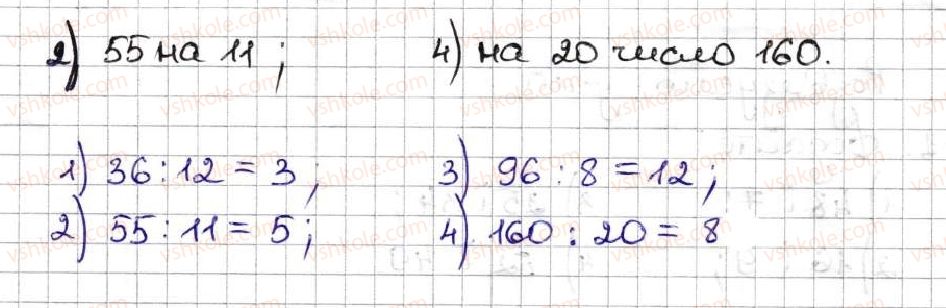 2) 55 на 11; 4) на 20 число 160.
1) 36 : 12 = 3; 3) 96 : 8 = 12;
2) 55 : 11 = 5; 4) 160 : 20 = 8